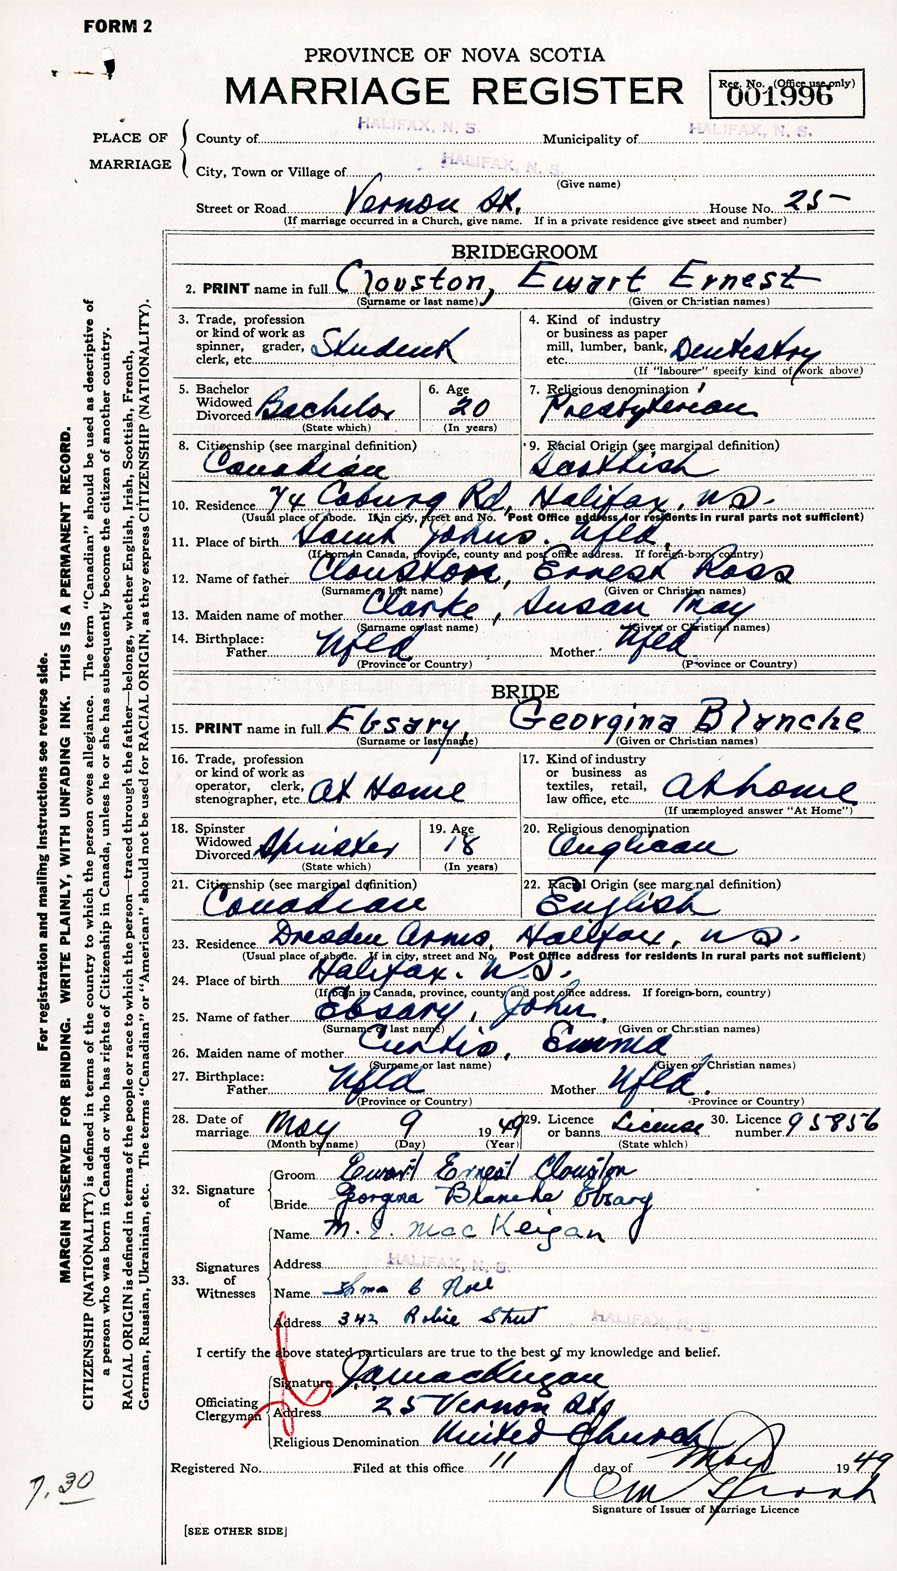 FORM 2
PROVINCE OF NOVA SCOTIA
MARRIAGE REGISTER
Reg. No. (Office use only)
001996
PLACE OF MARRIAGE
County of HALIFAX, N. S. Municipality of HALIFAX, N. S.
City, Town or Village of HALIFAX, N. S.
(Give name)
Street or Road Vernon St. House No. 25
(If marriage occurred in a Church, give name. If in a private residence give street and number)
BRIDEGROOM
2. PRINT name in full Clouston, Ewart Ernest
(Surname or last name) (Given or Christian names)
3. Trade, profession or kind of work as spinner, grader, clerk, etc. Student
4. Kind of industry or business as paper mill, lumber, bank, etc. Dentistry
(If "laboure-" specify kind of work above)
5. Bachelor Widowed Divorced Bachelor
(State which)
6. Age 20
(In years)
7. Religious denomination Presbyterian
8. Citizenship (see marginal definition) Canadian
9. Racial Origin (see marginal definition) Scottish
10. Residence 74 Coburg Rd, Halifax, N.S.
(Usual place of abode. If in city, street and No. Post Office address for residents in rural parts not sufficient)
11. Place of birth Saint Johns. Nfld.
(If born in Canada, province, county and post office address. If foreign-born, country)
12. Name of father Clouston, Ernest Ross
(Surname or last name) (Given or Christian names)
13. Maiden name of mother Clarke, Susan May
(Surname or last name) (Given or Christian names)
14. Birthplace:
Father Nfld Mother Nfld
(Province or Country) (Province or Country)
BRIDE
15. PRINT name in full Ebsary, Georgina Blanche
(Surname or last name) (Given or Christian names)
16. Trade, profession or kind of work as operator, clerk, stenographer, etc. At Home
17. Kind of industry or business as textiles, retail, law office, etc. At home
(If unemployed answer "At Home")
18. Spinster Widowed Divorced Spinster
(State which)
19. Age 18
(In years)
20. Religious denomination Anglican
21. Citizenship (see marginal definition) Canadian
22. Racial Origin (see marginal definition) English
23. Residence Dresden Arms, Halifax, N.S.
(Usual place of abode. If in city, street and No. Post Office address for residents in rural parts not sufficient)
24. Place of birth Halifax. N.S.
(If born in Canada, province, county and post office address. If foreign-born, country)
25. Name of father Ebsary, John
(Surname or last name) (Given or Christian names)
26. Maiden name of mother Curtis, Emma
(Surname or last name) (Given or Christian names)
27. Birthplace:
Father Nfld Mother Nfld.
(Province or Country) (Province or Country)
28. Date of marriage May 9 1949
(Month by name) (Day) (Year)
29. Licence or banns License
(State which)
30. Licence number 95856
32. Signature of
Groom Ewart Ernest Clouston
Bride Georgina Blanche Ebsary
33. Signatures of Witnesses
Name M. E. MacKeigan
Address HALIFAX, N. S.
Name
Address 342 Robie Street HALIFAX, N. S.
I certify the above stated particulars are true to the best of my knowledge and belief.
Officiating Clergyman
Signature J A MacKeigan
Address 25 Vernon St.
Religious Denomination United Church
Registered No. Filed at this office 11 day of May 1949
Signature of Issuer of Marriage Licence
[SEE OTHER SIDE]
7.30
For registration and mailing instructions see reverse side.
MARGIN RESERVED FOR BINDING. WRITE PLAINLY, WITH UNFADING INK. THIS IS A PERMANENT RECORD.
CITIZENSHIP (NATIONALITY) is defined in terms of the country to which the person owes allegiance. The term "Canadian" should be used as descriptive of
a person who was born in Canada or who has rights of Citizenship in Canada, unless he or she has subsequently become the citizen of another country.
RACIAL ORIGIN is defined in terms of the people or race to which the person—traced through the father—belongs, whether English, Irish, Scottish, French,
German, Russian, Ukrainian, etc. The terms "Canadian" or "American" should not be used for RACIAL ORIGIN, as they express CITIZENSHIP (NATIONALITY).